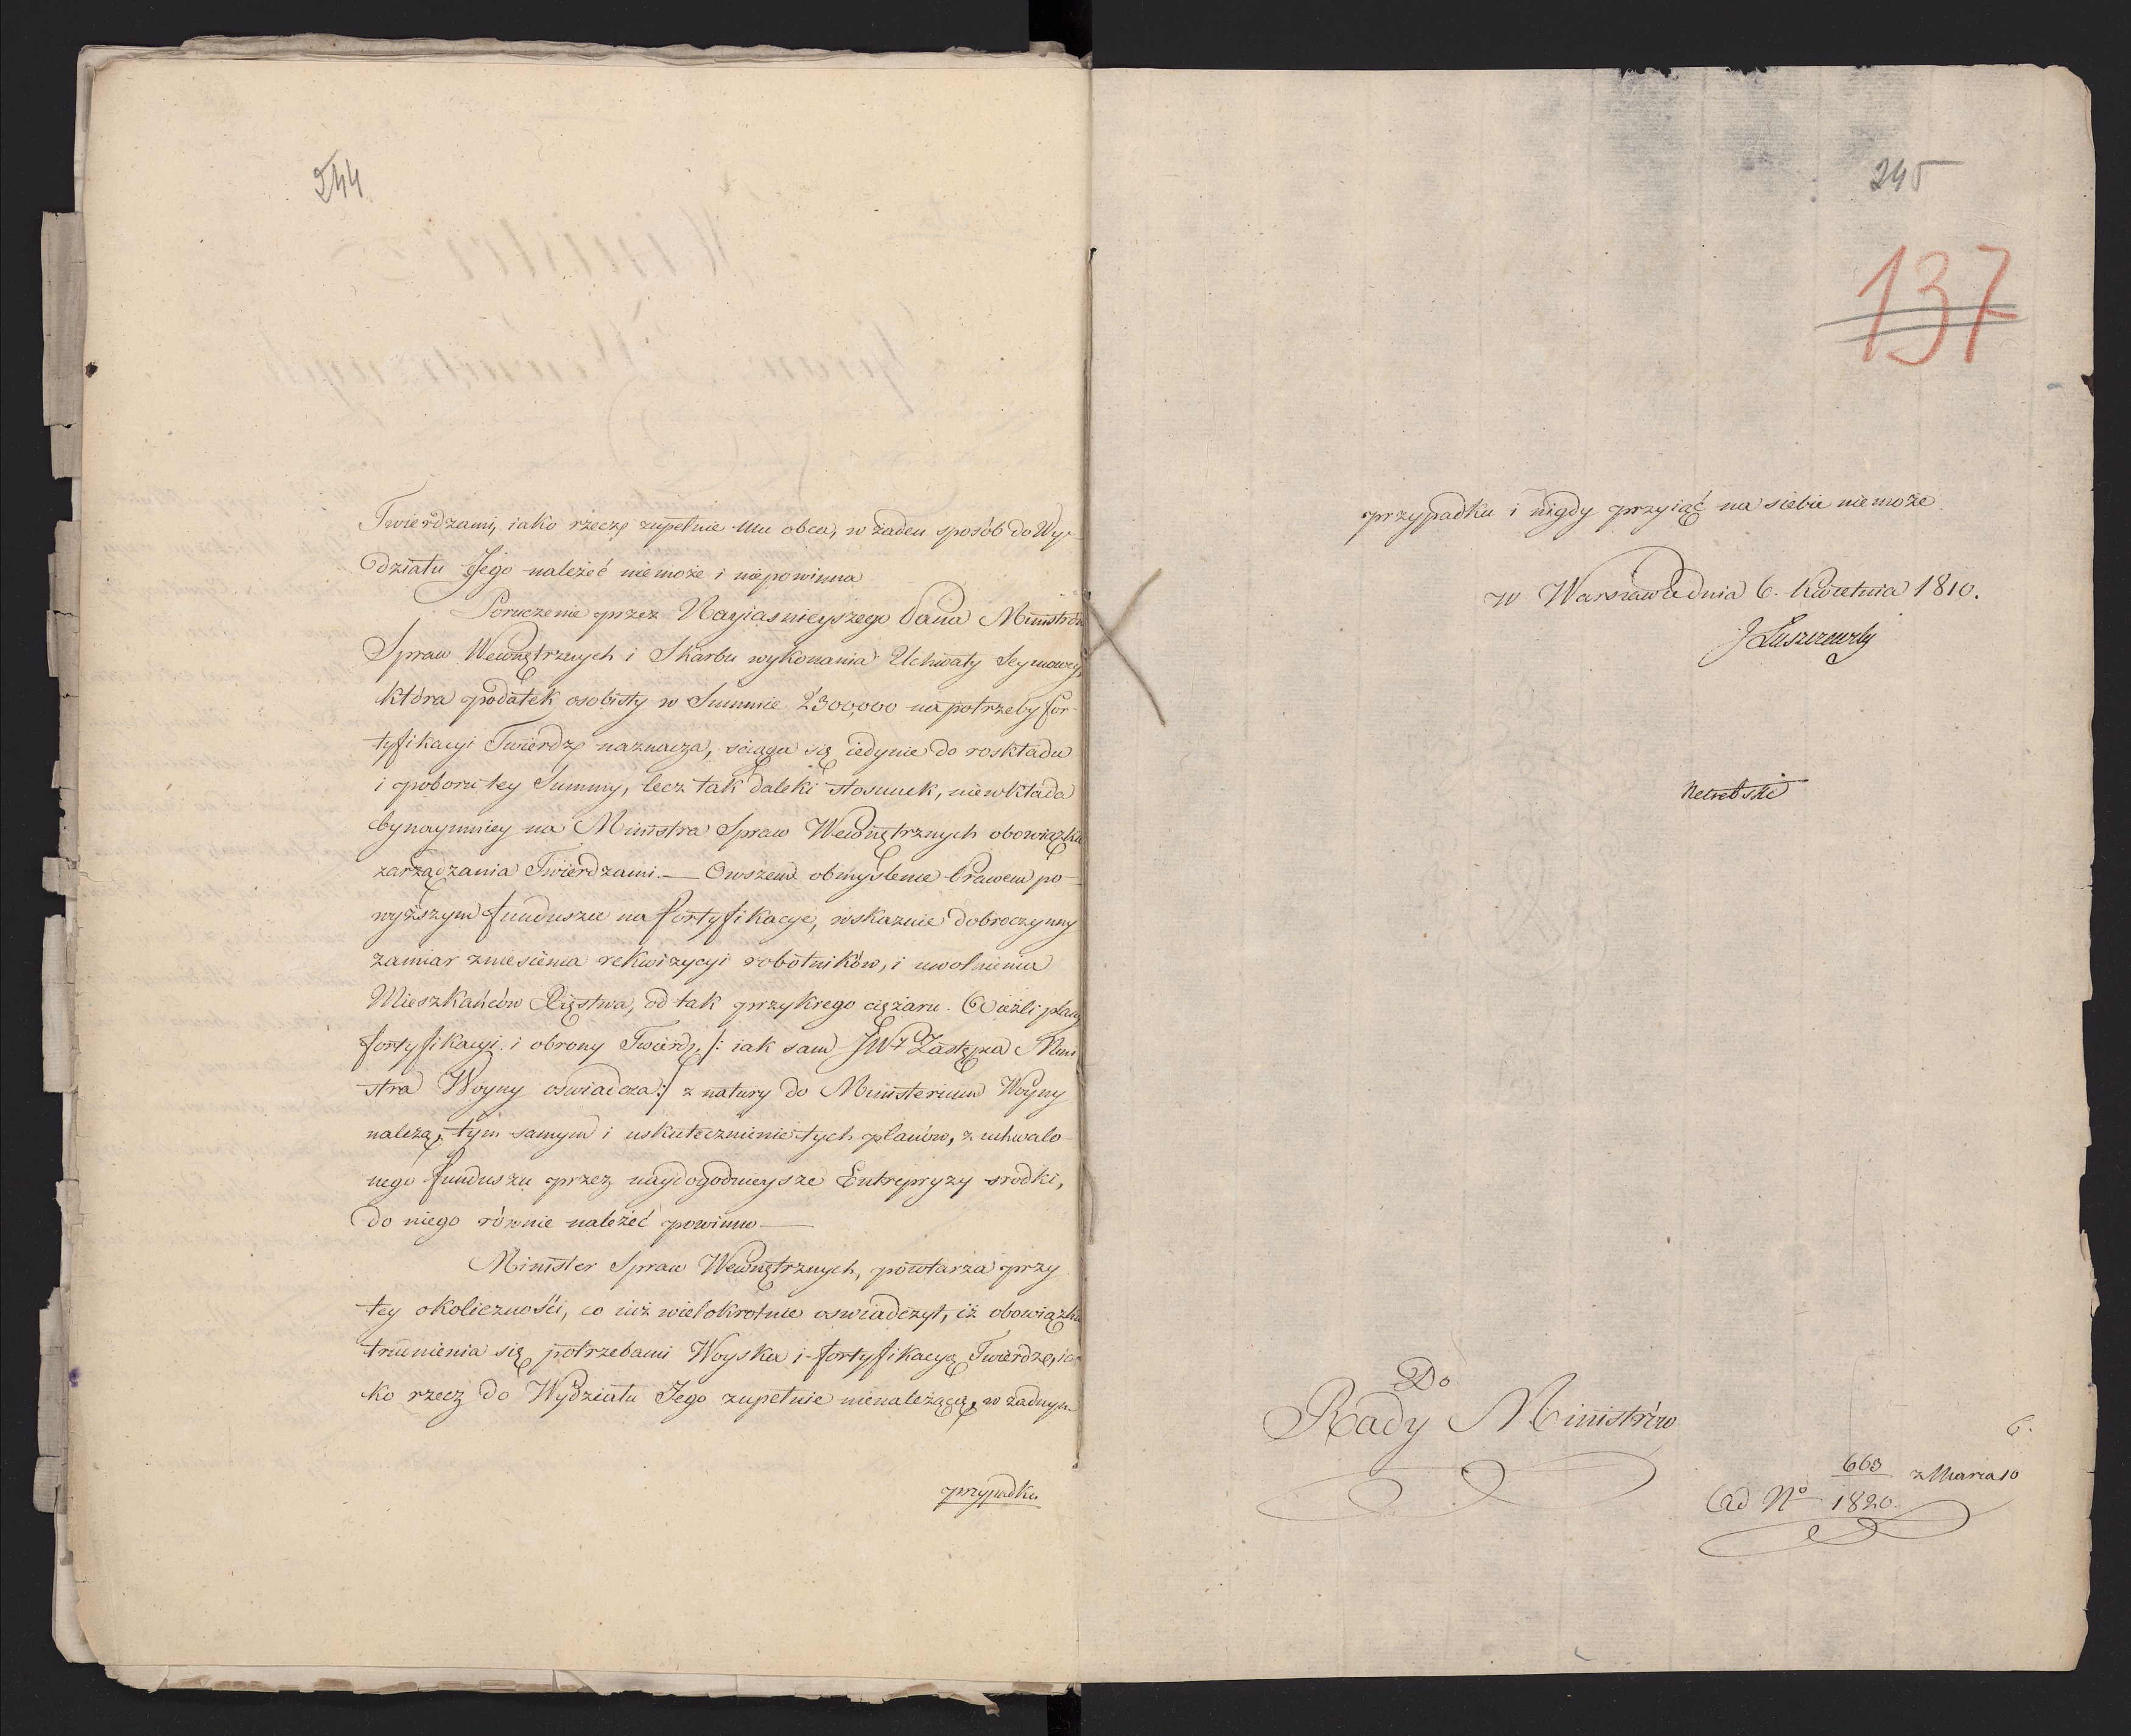 244
Twierdzami, iako rzeczą zupełnie mu obca, w żaden sposób do Wy-
działu Jego należeć niemoże i niepowinna
Poruczenie przez Nayiasnieyszego Pana Ministrów
Spraw Wewnętrznych i Skarbu wykonania Uchwały Seymowey,
która podatek osobisty w Summie 2'300,000 na potrzeby for-
tyfikacyi Twierdz naznacza, sciąga się iedynie do roskładu
i poboru tey Summy, lecz tak daleki stosunek, niewkłada
bynaymniey na Ministra Spraw Wewnętrznych obowiązku
zarządzania Twierdzami. — Owszem obmyślenie Prawem po-
wyższym funduszu na fortyfikacye, wskazuie dobroczynny
zamiar zniesienia rekwizycyi robotników, i uwolnienia
Mieszkańców Xięstwa, od tak przykrego ciężaru. A ieżli plany
fortyfikacyi i obrony Twierdz /: iak sam JWP Zastępca Mini
stra Woyny oswiadcza :/ z natury do Ministerium Woyny
należą, tym samym i uskutecznienie tych planów, z uchwalo-
nego funduszu przez naydogodnieysze Entrepryzy srodki,
do niego równie należeć powinno —
Minister Spraw Wewnętrznych, powtarza przy
tey okoliczności, co iuż wielokrotnie oswiadczył, iż obowiązku
trudnienia się potrzebami Woyska i fortyfikacyą Twierdz, ia
ko rzecz do Wydziału Jego zupełnie nienależącą, w żadnym
przypadku
245
137
przypadku i nigdy przyiąć na siebie niemoże
w Warszawie dnia 6. Kwietnia 1810.
J Łuszczewsky
Do
Rady Ministrów
6.
663 z Marca 10
Ad No 1820.